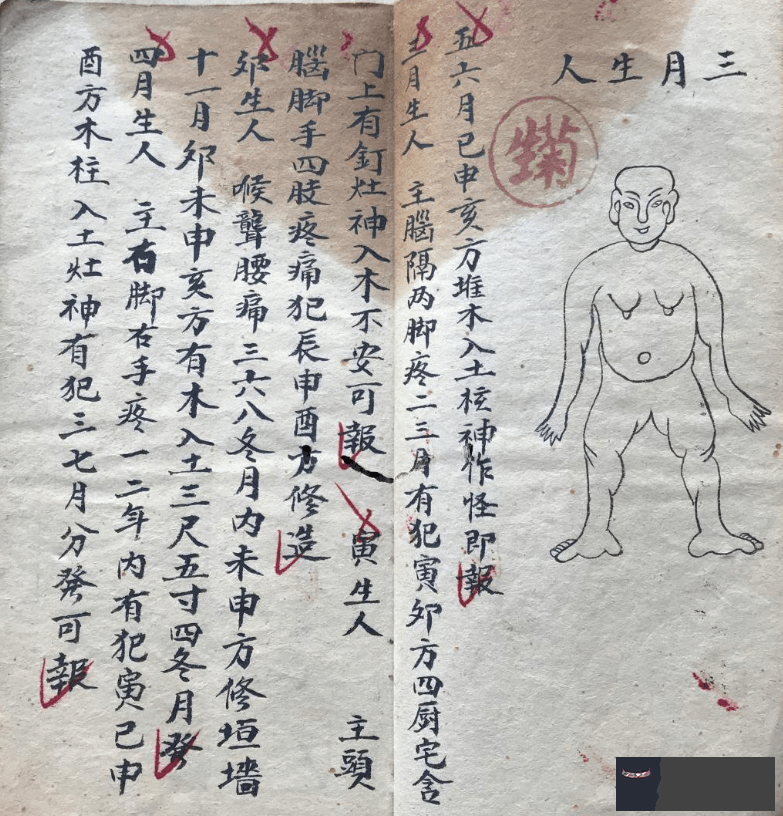 三月生人
五六月巳申亥方堆木入土核神作怪即報
二月生人 主腦隔两脚疼二三月有犯寅夘方四厨宅舍
门上有釘灶神入木不安可報 寅生人 主頭
腦脚手四肢疼痛犯辰申酉方修造
夘生人 喉聾腰痛三六八冬月内未申方修垣墻
十一月夘未申亥方有木入土三尺五寸四冬月發
四月生人 主右脚右手疼一二年内有犯寅巳申
酉方木柱入土灶神有犯三七月分發可報